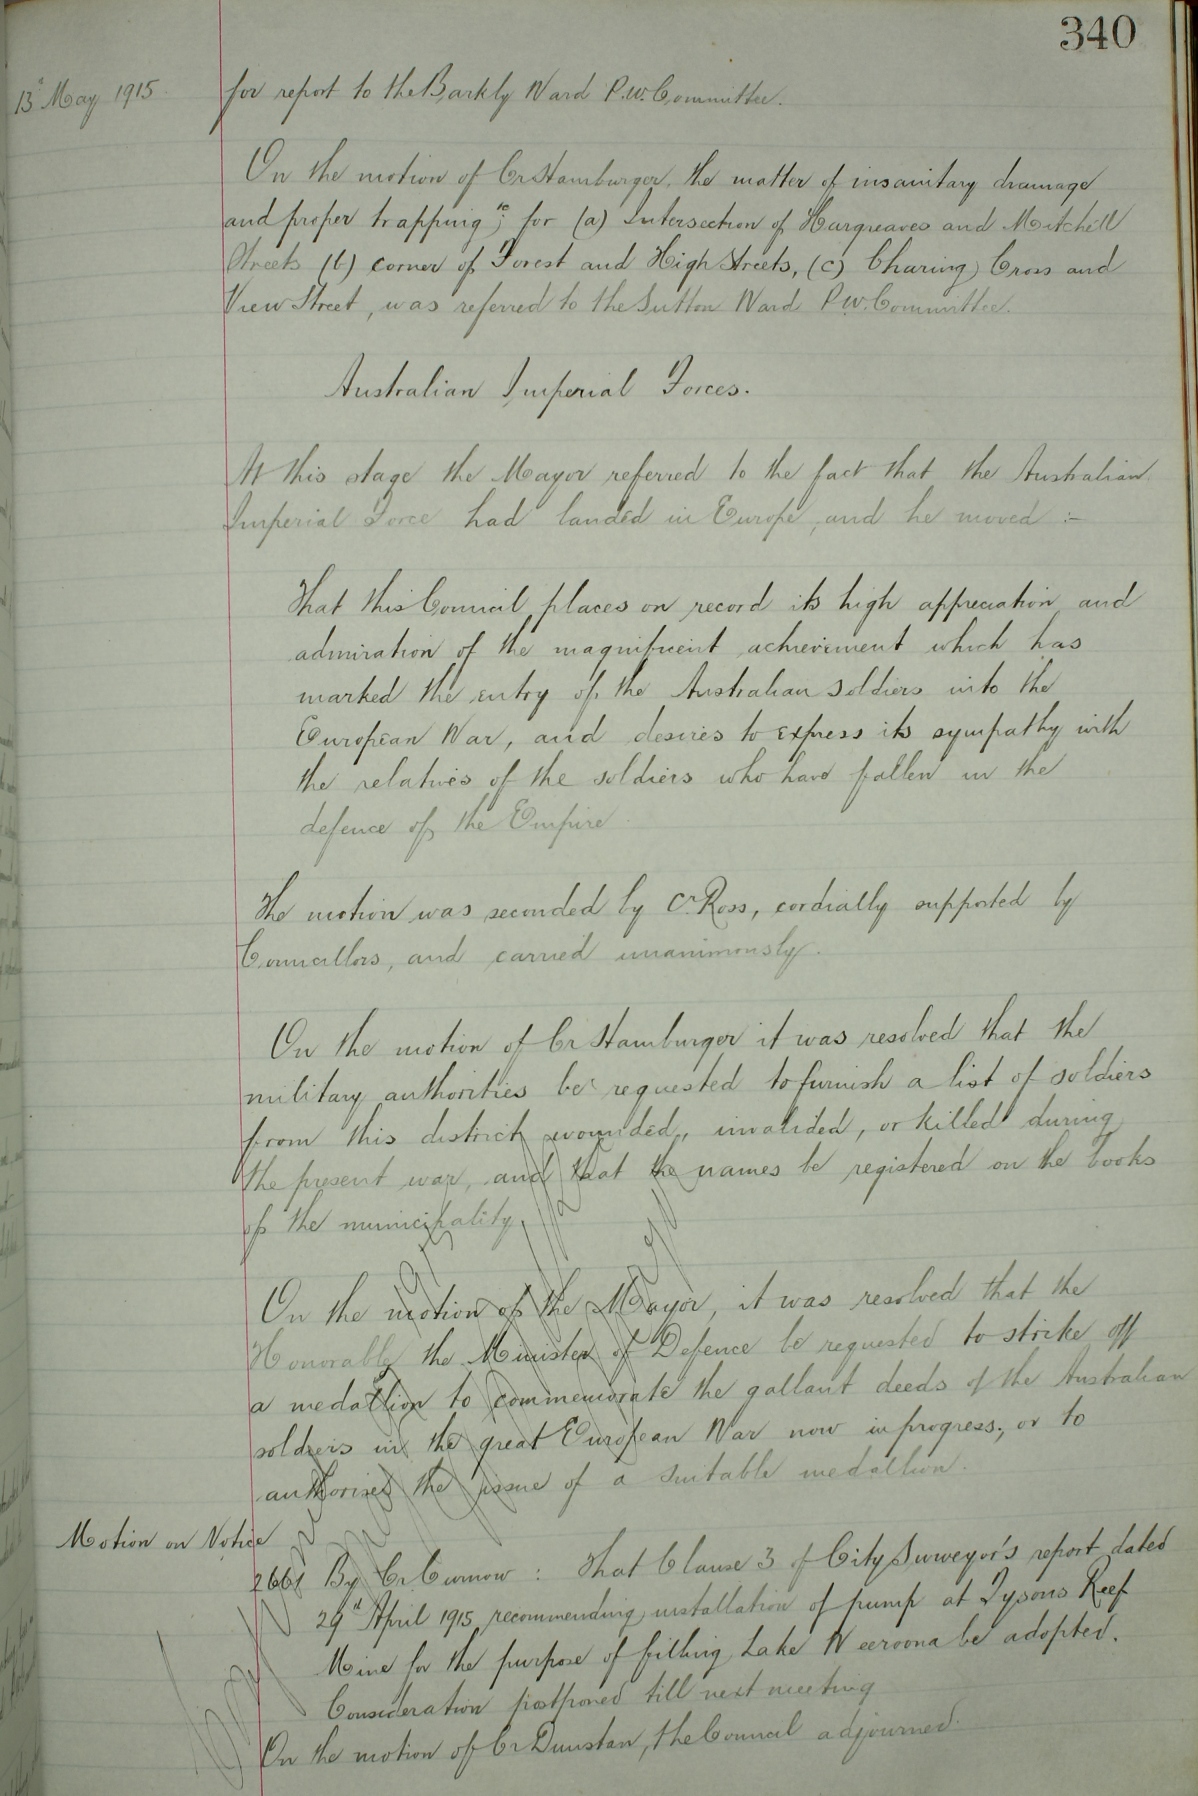 340
13th May 1915
for report to the Barkly Ward P.W. Committee.
On the motion of Cr Hamburger, the matter of insanitary drainage
and proper trapping &c; for (a) Intersection of Hargreaves and Mitchell
Streets (b) corner of Forest and High Streets, (c) Charing Cross and
View Street, was referred to the Sutton Ward P.W. Committee.
Australian Imperial Forces.
At this stage the Mayor referred to the fact that the Australian
Imperial Force had landed in Europe, and he moved :-
That this Council places on record its high appreciation and
admiration of the magnificent achievement which has
marked the entry of the Australian soldiers into the
European War, and desires to express its sympathy with
the relatives of the soldiers who have fallen in the
defence of the Empire
The motion was seconded by Cr Ross, cordially supported by
Councillors, and carried unanimously.
On the motion of Cr Hamburger it was resolved that the
military authorities be requested to furnish a list of soldiers
from this district wounded, invalided, or killed during
the present war, and that the names be registered on the books
of the municipality.
On the motion of the Mayor, it was resolved that the
Honorable the Minister of Defence be requested to strike off
a medallion to commemorate the gallant deeds of the Australian
soldiers in the great European War now in progress, or to
authorise the issue of a suitable medallion.
Motion on Notice
2661 By Cr Curnow : That Clause 3 of City Surveyor's report dated
29th April 1915 recommending installation of pump at Tysons Reef
Mine for the purpose of filling Lake Weeroona be adopted.
Consideration postponed till next meeting
On the motion of Cr Dunstan, the Council adjourned.